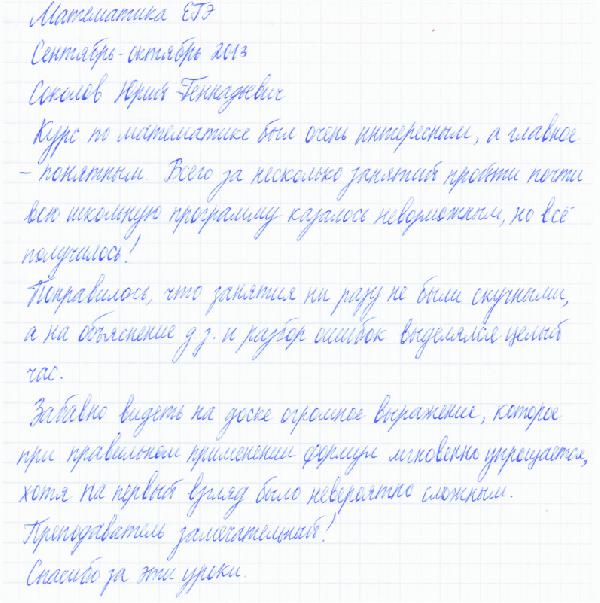 Математика ЕГЭ
Сентябрь-октябрь 2013
Соколов Юрий Геннадиевич
Курс по математике был очень интересным, а главное
- понятным. Всего за несколько занятий пройти почти
всю школьную программу казалось невозможным, но всё
получилось!
Понравилось, что занятия ни разу не были скучными,
а на объяснение д.з. и разбор ошибок выделялся целый
час.
Забавно видеть на доске огромное выражение, которое
при правильном применении формул мгновенно упрощается,
хотя на первый взгляд было невероятно сложным.
Преподаватель замечательный!
Спасибо за эти уроки.